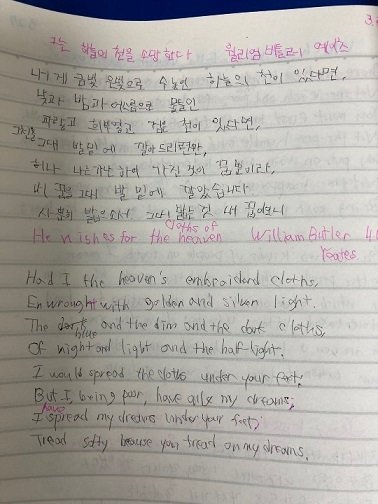 3.
그는 하늘의 천을 소망한다 윌리엄 버틀러 예이츠
내게 금빛 은빛으로 수놓인 하늘의 천이 있다면,
낮과 밤과 어스름으로 물들인
파랗고 희뿌옇고 검은 천이 있다면,
그 천을 그대 발밑에 깔아드리련만,
허나 나는 가난하여 가진 것이 꿈뿐이라,
내 꿈을 그대 발 밑에 깔았습니다
사뿐히 밟으소서, 그대 밟는 것 내 꿈이오니
He wishes for the cloths of heaven William Butler Yeates
Had I the heaven's embroidard cloths,
Enwrought with golden and silver light.
The blue and the dim and the dark cloths,
Of night and light and the half-light.
I would spread the cloths under your feet;
But I, being poor, have only my dreams;
I have spread my dreams under your feet;
Tread softy because you tread on my dreams.